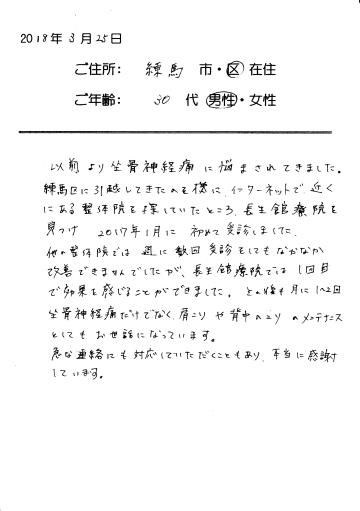 2018年 3月 25日
ご住所： 練馬 市・区 在住
ご年齢： 30 代 男性・女性
以前より坐骨神経痛に悩まされてきました。
練馬区に引越してきたのを機に、インターネットで近く
にある整体院を探していたところ、長生館療院を
見つけ 2017年1月に 初めて受診しました。
他の整体院では 週に数回受診をしてもなかなか
改善できませんでしたが、長生館療院では1回目
で効果を感じることができました。その後も月に1〜2回
坐骨神経痛だけでなく、肩こりや背中のこりのメンテナンス
としてもお世話になっています。
急な連絡にも対応していただくこともあり、本当に感謝
しています。